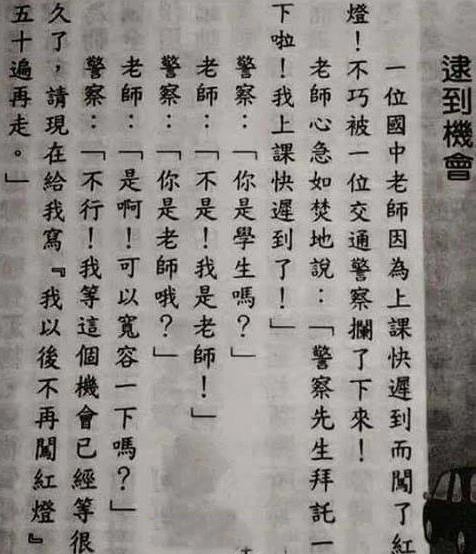 逮到機會
一位國中老師因為上課快遲到而闖了紅
燈！不巧被一位交通警察攔了下來！
老師心急如焚地說：「警察先生拜託一
下啦！我上課快遲到了！」
警察：「你是學生嗎？」
老師：「不是！我是老師！」
警察：「你是老師哦？」
老師：「是啊！可以寬容一下嗎？」
警察：「不行！我等這個機會已經等很
久了，請現在給我寫『我以後不再闖紅燈』
五十遍再走。」